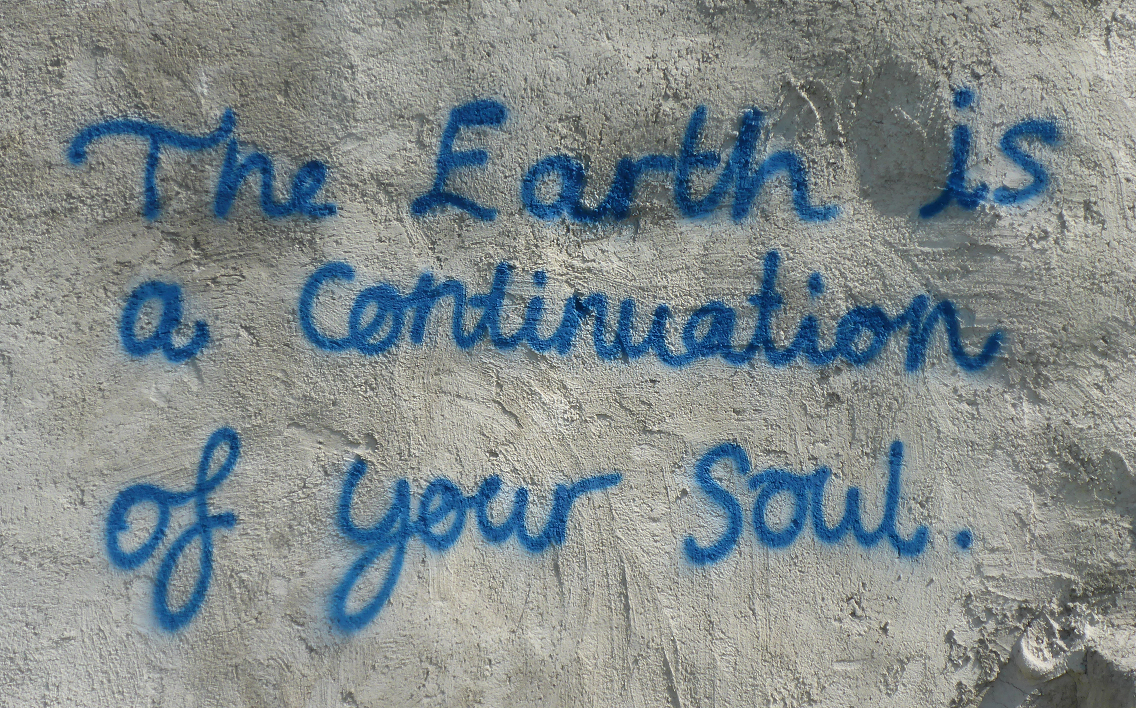 The Earth is
a Continuation
of your Soul.